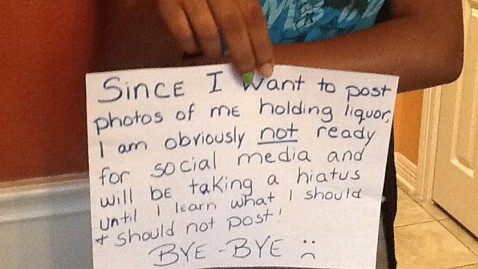 SincE I want to post
photos of mE holding liquor,
I am obviously not ready
for social media and
will bE taking a hiatus
until I learn what I should
+ should not post!
BYE - BYE :(